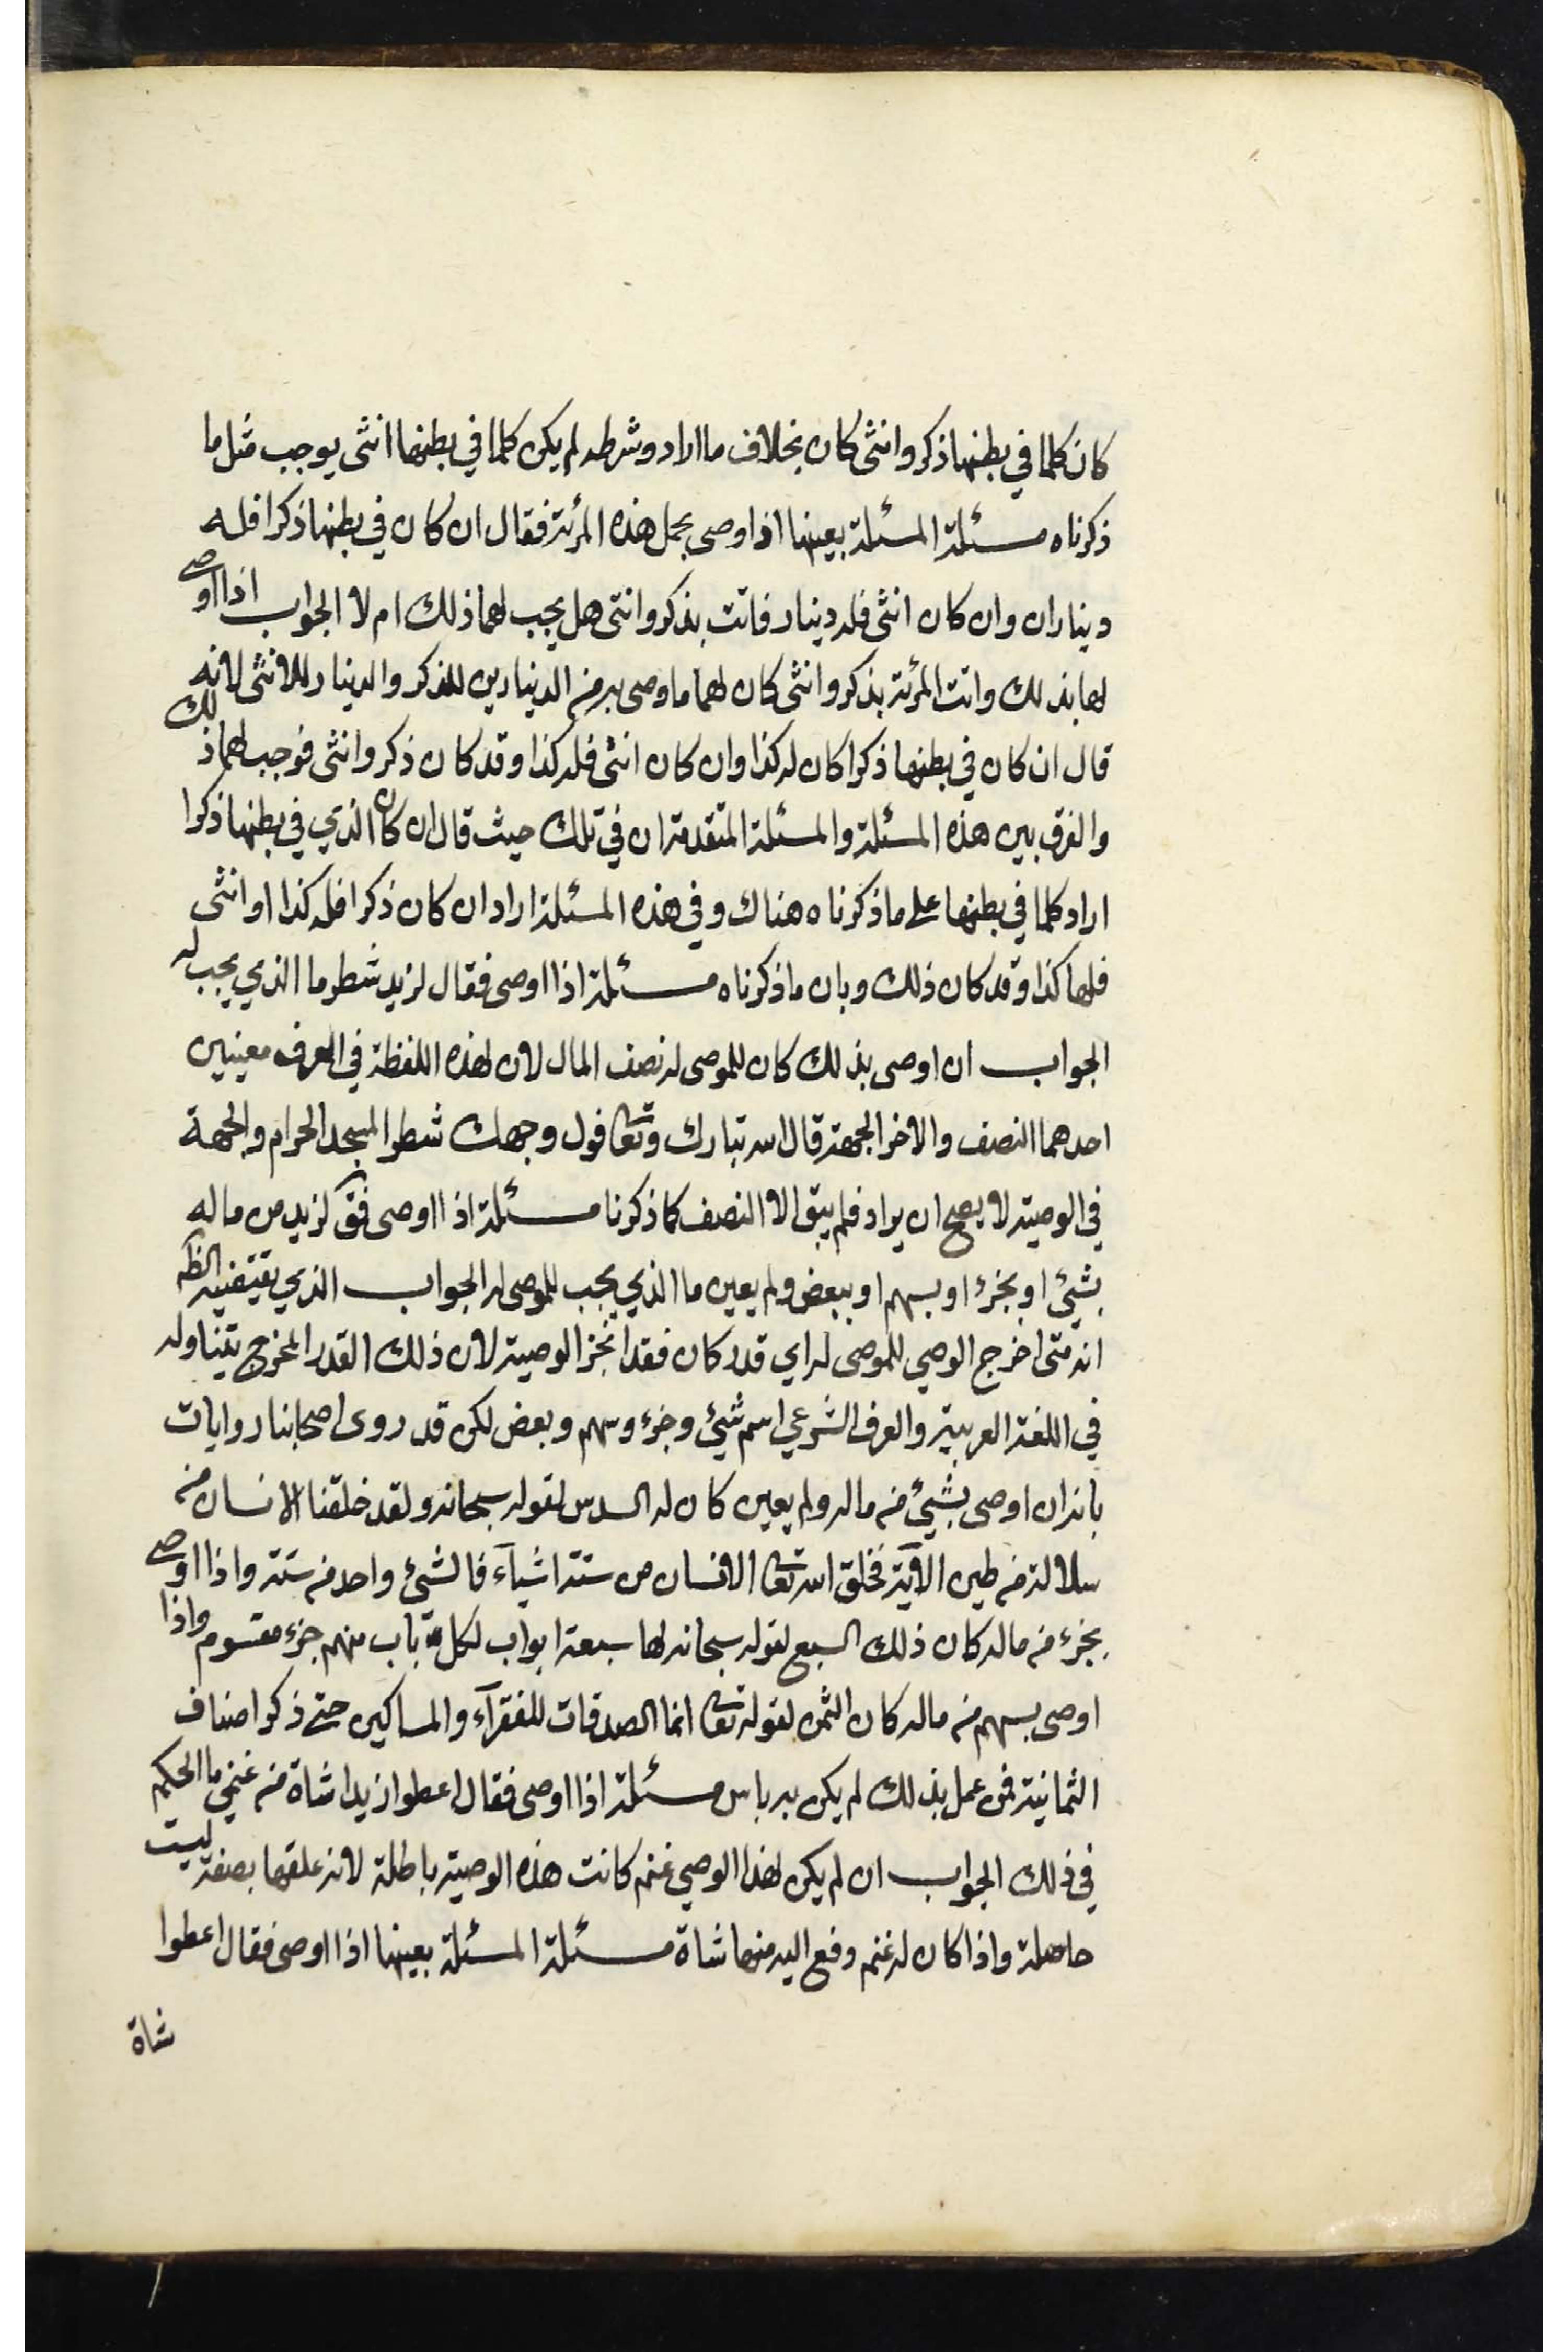 كان كلما في بطنها ذكر وانثى كان بخلاف ما اراد وشرطه لم يكن كلما في بطنها انثى يوجب مثل ما
ذكرناه مسئلة المسئلة بعينها اذا اوصى بحمل هذه المرئة فقال ان كان في بطنها ذكرا فله
ديناران وان كان انثى فله دينار فاتت بذكر وانثى هل يجب لهما ذلك ام لا الجواب اذا اوصى
لها بذلك واتت المرئة بذكر وانثى كان لهما ما اوصى به من الدينارين للذكر والدينار للانثى لانه
قال ان كان في بطنها ذكرا كان له كذا وان كان انثى فله كذا وقد كان ذكر وانثى فوجب لهما ذلك
والفرق بين هذه المسئلة والمسئلة المتقدمة ان في تلك حيث قال ان كان الذي في بطنها ذكرا
اراد كلما في بطنها على ما ذكرناه هناك وفي هذه المسئلة اراد ان كان ذكرا فله كذا او انثى
فلها كذا وقد كان ذلك وبان ما ذكرناه مسئلة اذا اوصى فقال لزيد شطر ما الذي يجب له
الجواب ان اوصى بذلك كان للموصى له نصف المال لان لهذه اللفظة في العرف معنيين
احدهما النصف والاخر الجهة قال الله تبارك وتعا فول وجهك شطر المسجد الحرام والجهة
في الوصية لا يصح ان يراد فلم يبق الا النصف كما ذكرنا مسئلة اذا اوصى فق لزيد من ماله
بشيئ او بجزء او بسهم او ببعض ولم يعين ما الذي يجب للموصى له الجواب الذي يقتضيه الظه
انه متى اخرج الوصي للموصى له اي قدر كان فقد انجز الوصية لان ذلك القدر المخرج يتناوله
في اللغة العربية والعرف الشرعي اسم شيئ وجزء وسهم وبعض لكن قد روى اصحابنا روايات
بانه ان اوصى بشيئ من ماله ولم يعين كان له السدس لقوله سبحانه ولقد خلقنا الانسان من
سلالة من طين الاية فخلق الله تعا الانسان من ستة اشياء فالشيئ واحد من ستة واذا اوصى
بجزء من ماله كان ذلك السبع لقوله سبحانه لها سبعة ابواب لكل باب منهم جزء مقسوم واذا
اوصى بسهم من ماله كان الثمن لقوله تعا انما الصدقات للفقرآء والمساكين حتى ذكر اصناف
الثمانية فمن عمل بذلك لم يكن به باس مسئلة اذا اوصى فقال اعطوا زيدا شاة من غنمي ما الحكم
في ذلك الجواب ان لم يكن لهذا الوصي غنم كانت هذه الوصية باطلة لانه علقها بصفة ليست
حاصلة واذا كان له غنم دفع اليه منها شاة مسئلة المسئلة بعينها اذا اوصى فقال اعطوا
شاة